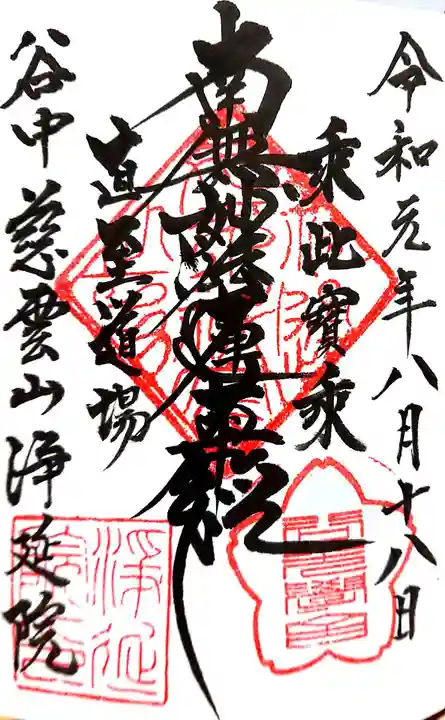 令和元年八月十八日
乘此寶乘
南無妙法蓮華経
直至道場
谷中 慈雲山 浄延院
浄延院